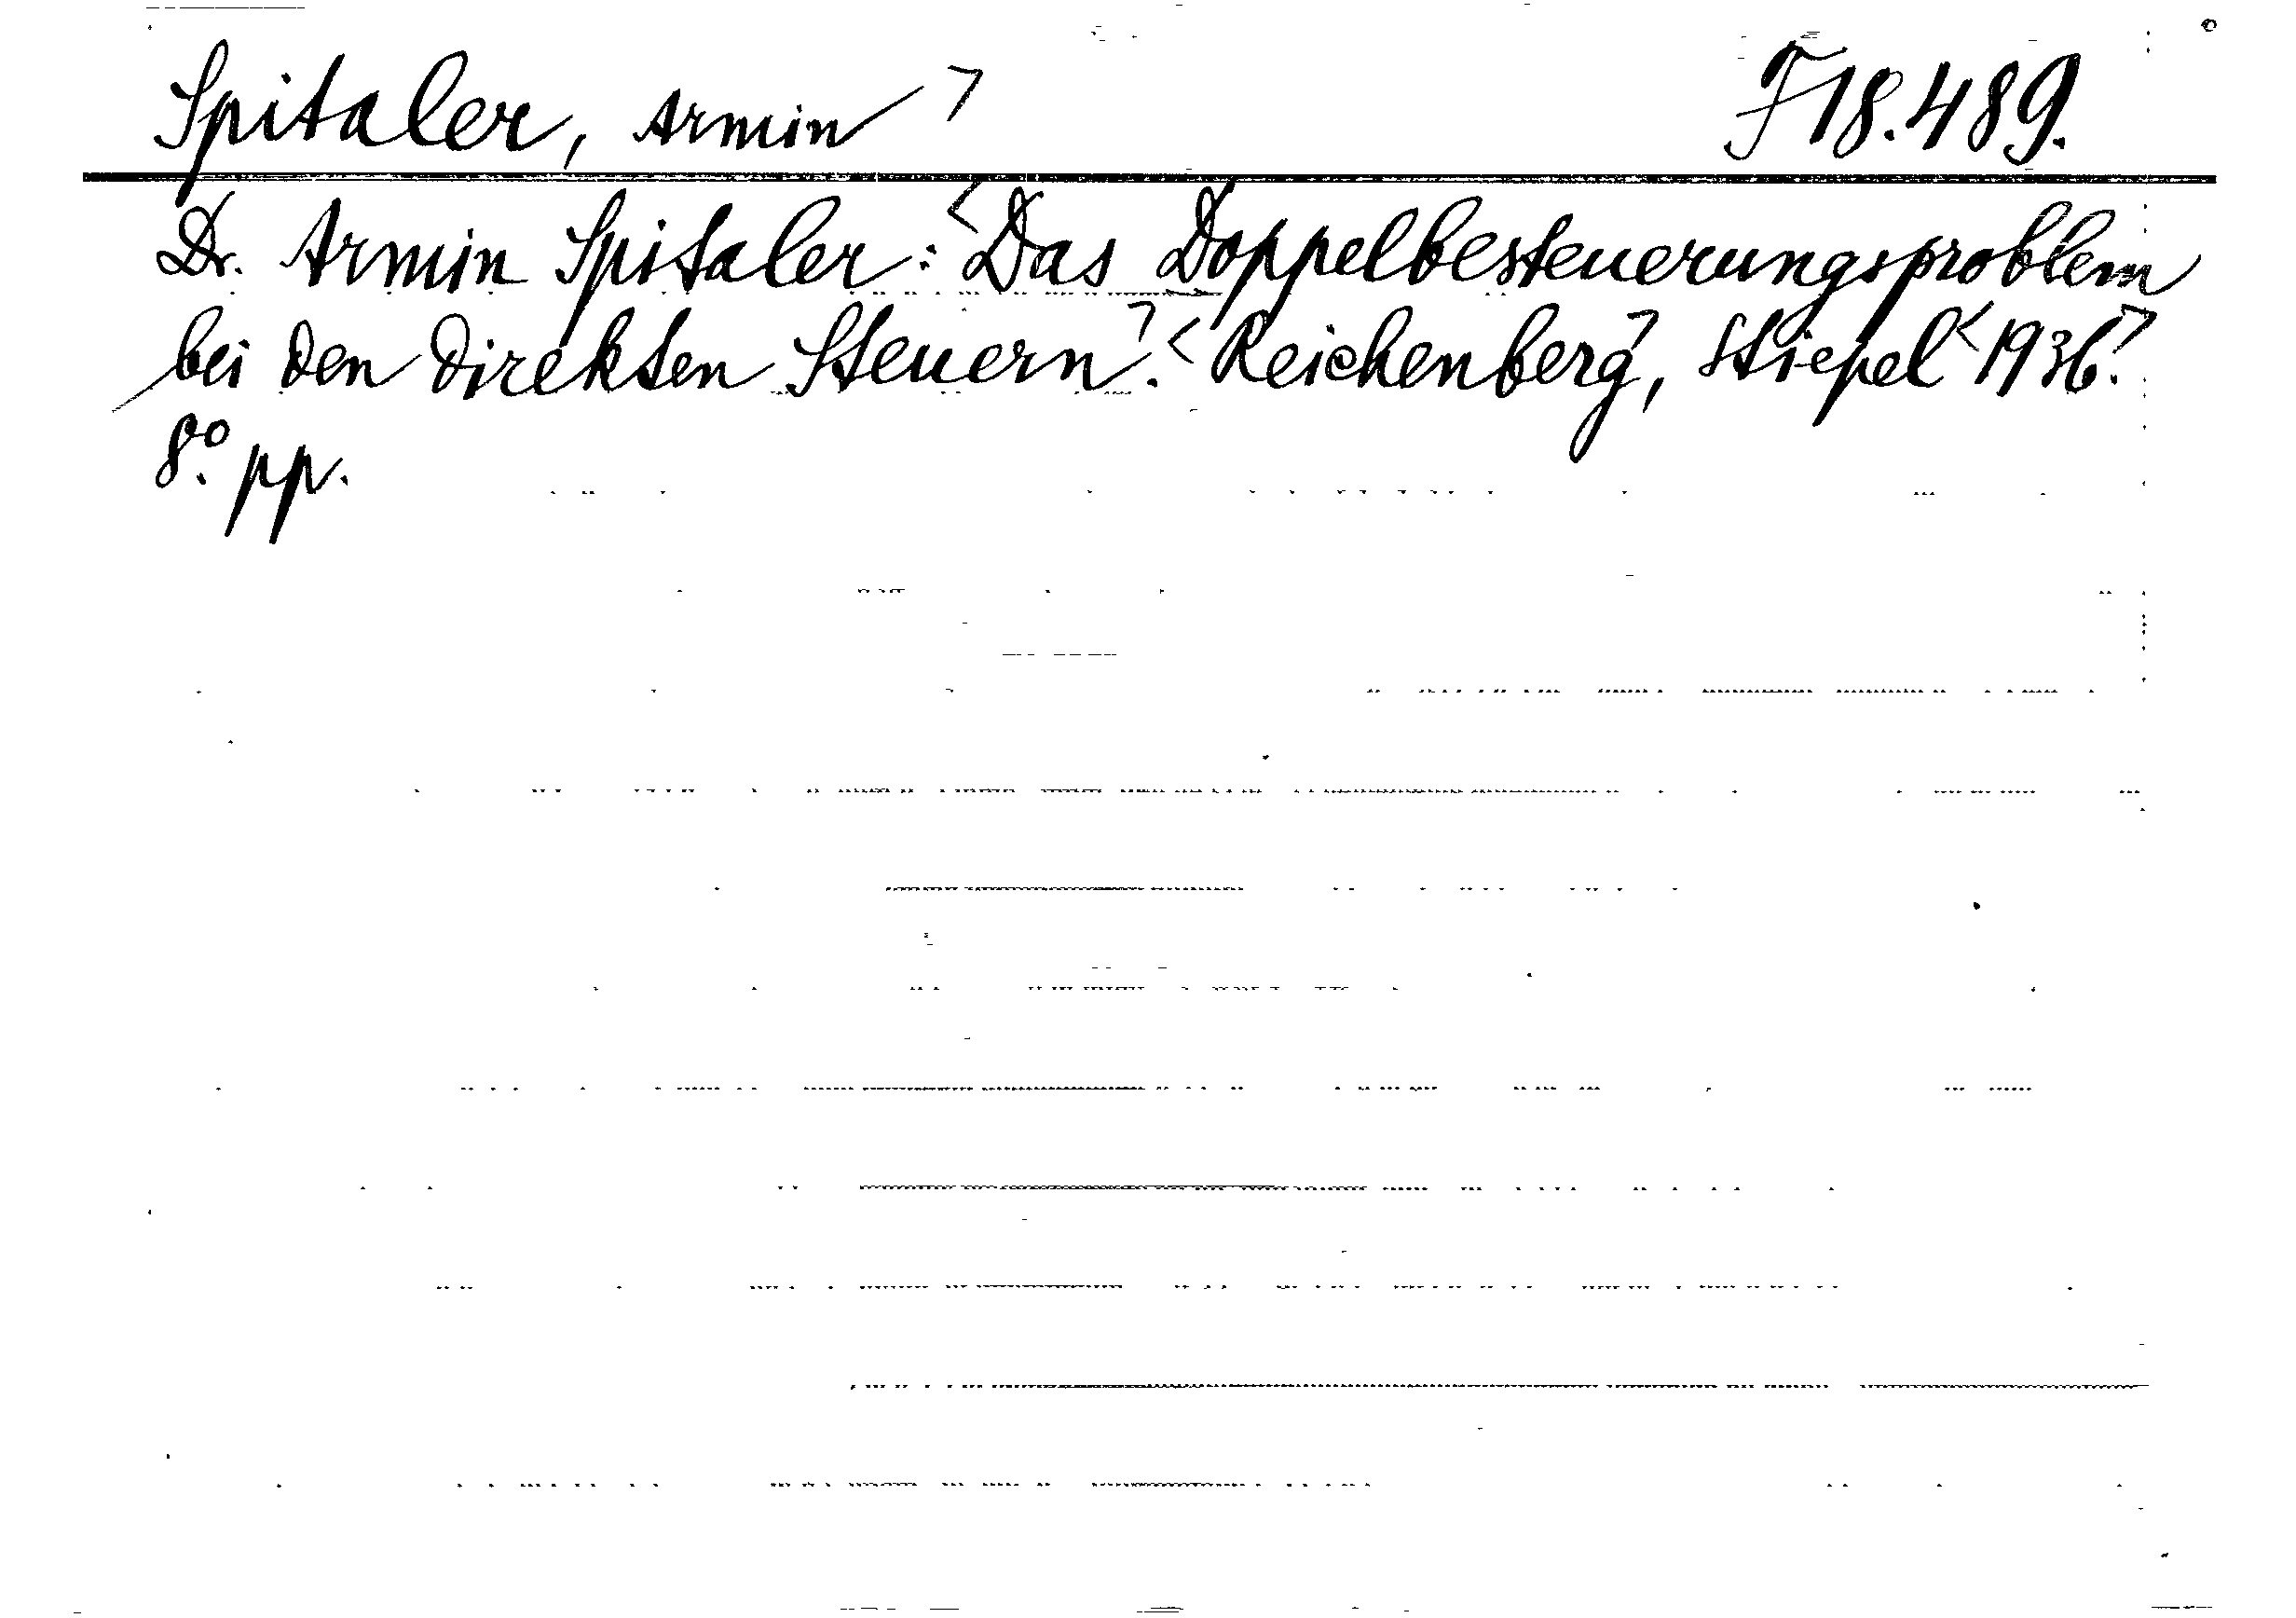 Spitaler, Armin ⁊ F 18.489.
Dr. Armin Spitaler: <Das Doppelbesteuerungsproblem
bei den direkten Steuern⁊. <Reichenberg⁊, Stiepel <1936.⁊
8.° pp.